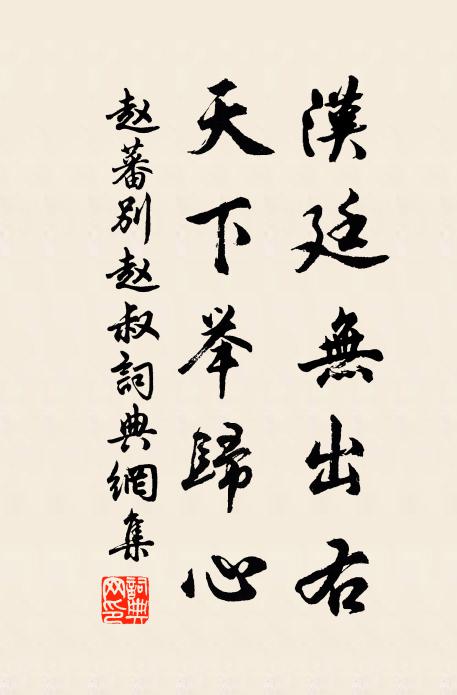 漢廷無出右
天下举歸心
赵蕃别赵叔詞典網集
詞典網印